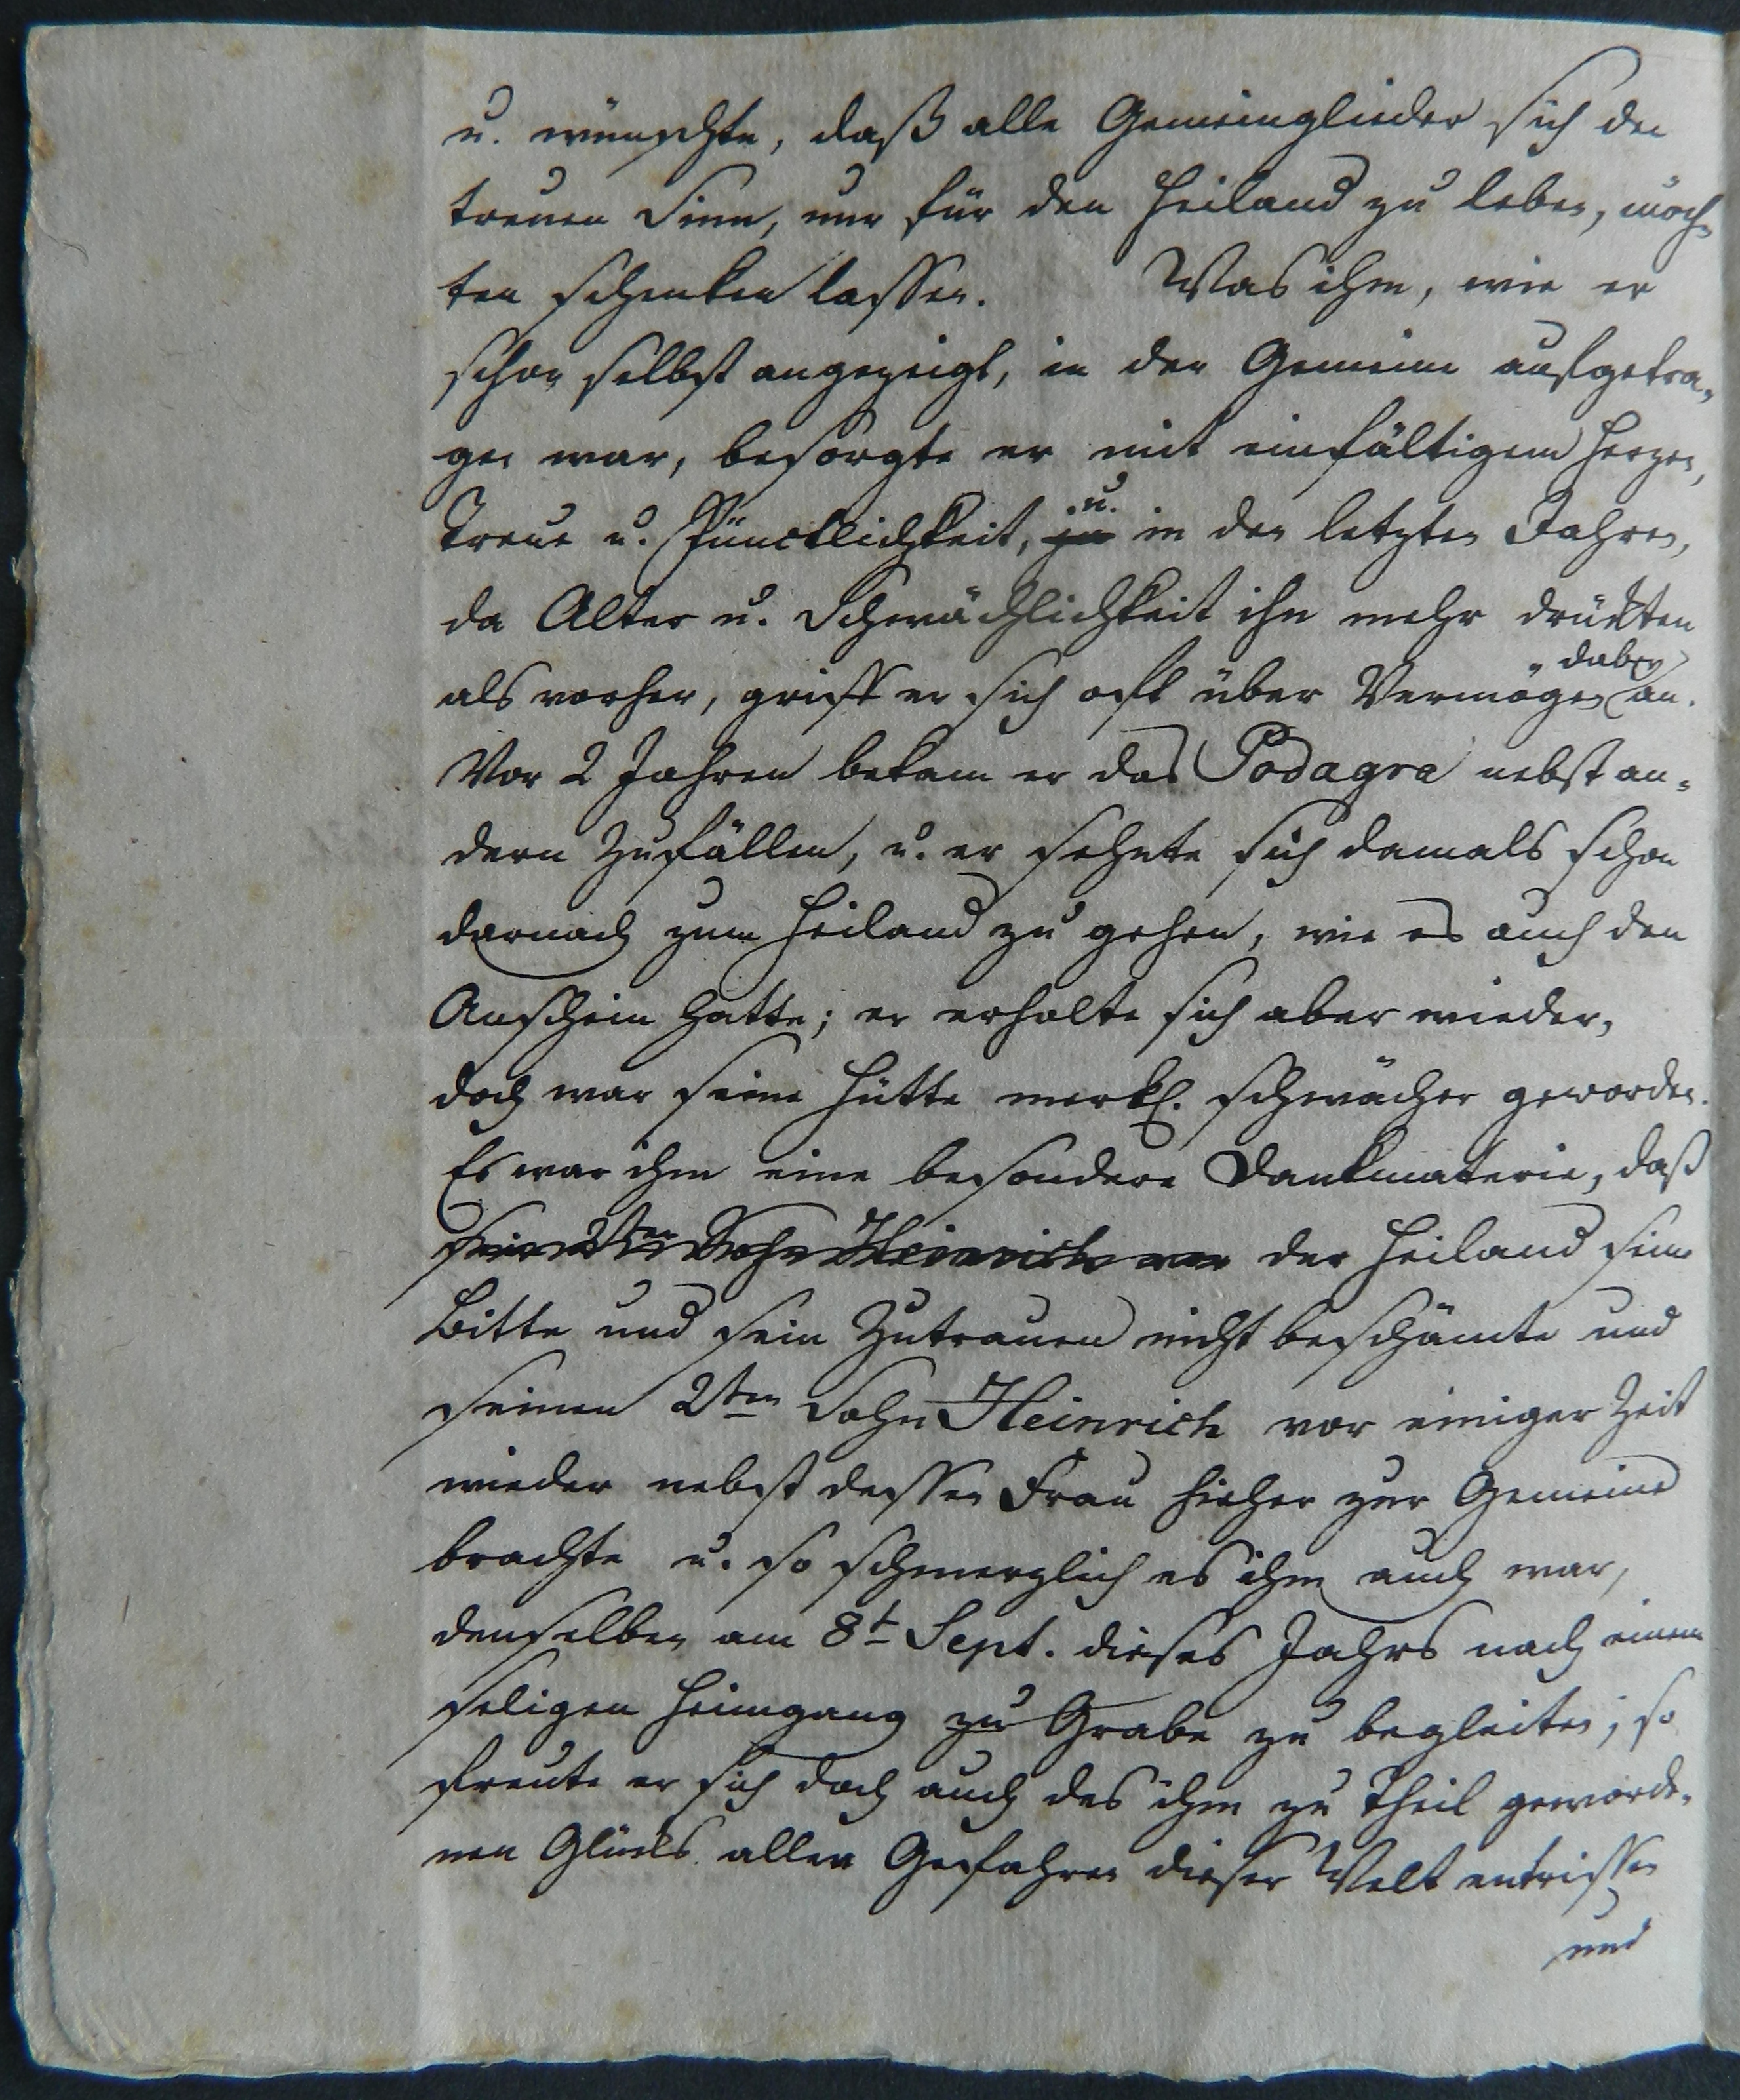 u. wünschte, daß alle Gemeinglieder sich den
treuen Sinn, nur für den Heiland zu leben, möch=
ten schenken lassen. Was ihm, wie er
schon selbst angezeigt, in der Gemeine aufgetra=
gen war, besorgte er mit einfältigem Herzen,
Treue u. Pünctlichkeit, ja u. in den letzten Jahren,
da Alter u. Schwächlichkeit ihn mehr drückten
als vorher, griff er sich oft über Vermögen dabey an.
Vor 2 Jahren bekam er das Podagra nebst an=
dern Zufällen, u. er sehnte sich damals schon
darnach zum Heiland zu gehen, wie es auch den
Anschein hatte; er erholte sich aber wieder,
doch war seine Hütte merkl. schwächer geworden.
Es war ihm eine besondere Dankmaterie, daß
sein 2ter Sohn Heinrich der Heiland seine
Bitte und sein Zutrauen nicht beschämte und
seinen 2ten Sohn Heinrich vor einiger Zeit
wieder nebst dessen Frau hieher zur Gemeine
brachte u. so schmerzlich es ihm auch war,
denselben am 8t Sept. dieses Jahrs nach einem
seligen Heimgang zu Grabe zu begleiten; so
freute er sich doch auch des ihm zu Theil geworde=
nen Glücks allen Gefahren dieser Welt entrissen
und